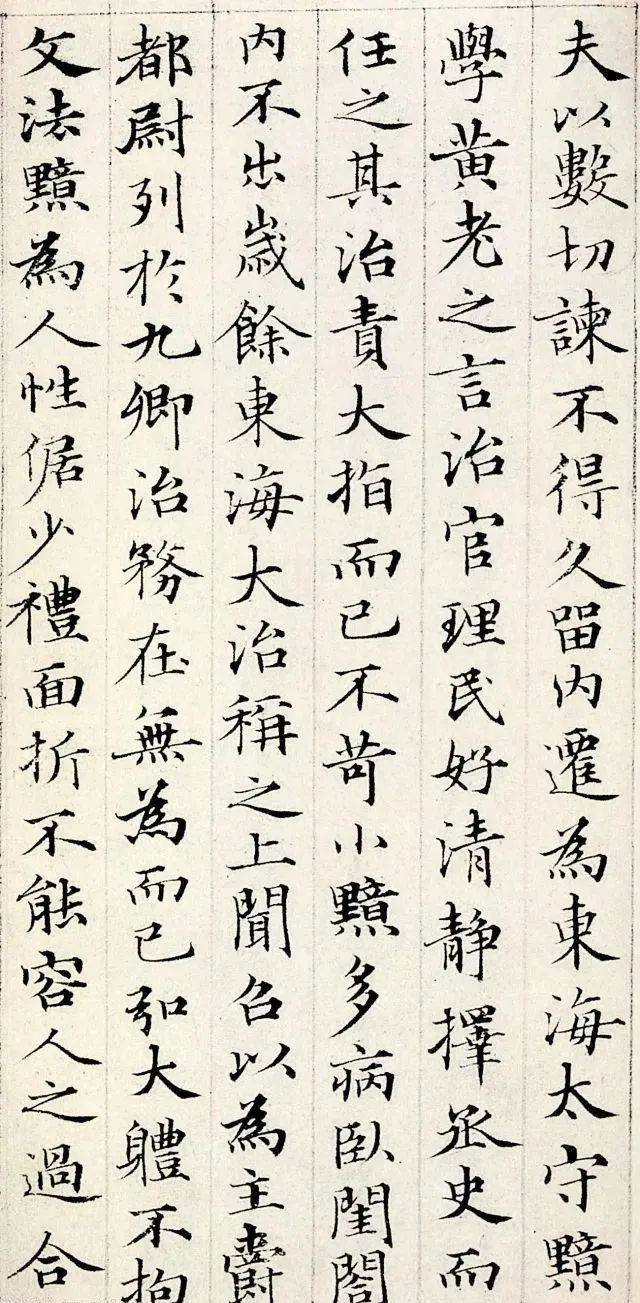 夫以數切諫不得久留內遷為東海太守黯
學黃老之言治官理民好清静擇丞史而
任之其治責大指而已不苛小黯多病臥閨閤
內不出歲餘東海大治稱之上聞召以為主爵
都尉列於九卿治務在無為而已弘大軆不拘
文法黯為人性倨少禮面折不能容人之過合